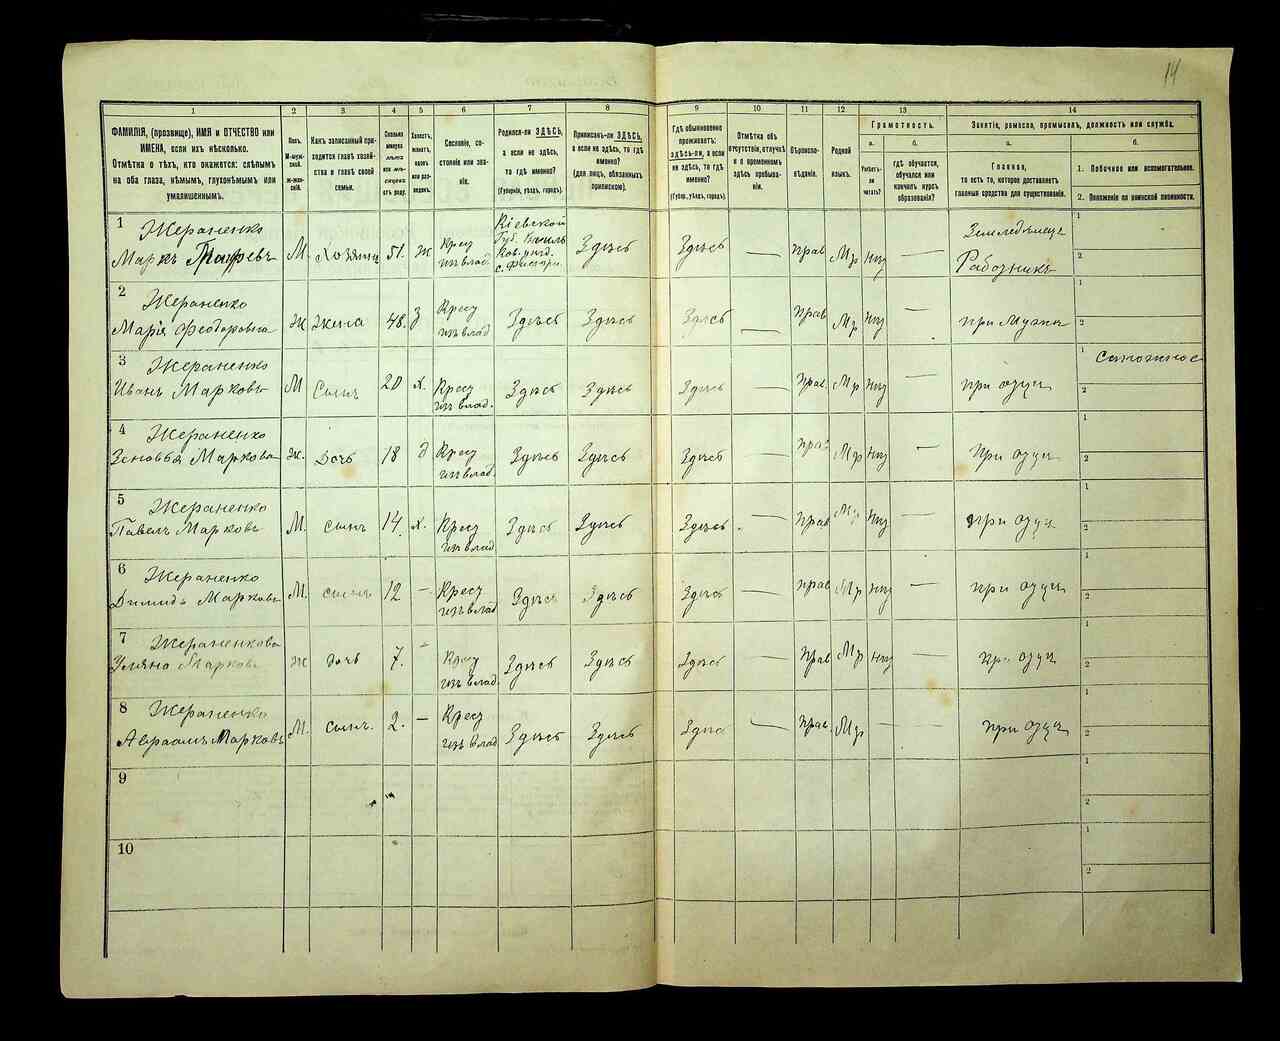 14
1 2 3 4 5 6 7 8 9 10 11 12 13 14
ФАМИЛІЯ, (прозвище), ИМЯ и ОТЧЕСТВО или
ИМЕНА, если ихъ нѣсколько.
Отмѣтка о тѣхъ, кто окажется: слѣпымъ
на оба глаза, нѣмымъ, глухонѣмымъ или
умалишеннымъ.
Полъ.
М-муж-
ской.
ж-жен-
скій.
Какъ записанный при-
ходится главѣ хозяй-
ства и главѣ своей
семьи.
Сколько
минуло
лѣтъ
или мѣ-
сяцевъ
отъ роду.
Холостъ,
женатъ,
вдовъ
или раз-
веденъ.
Сословіе, со-
стояніе или зва-
ніе.
Родился-ли ЗДѢСЬ,
а если не здѣсь,
то гдѣ именно?
(Губернія, уѣздъ, городъ).
Приписанъ-ли ЗДѢСЬ,
а если не здѣсь, то гдѣ
именно?
(для лицъ, обязанныхъ
припискою).
Гдѣ обыкновенно
проживаетъ:
здѣсь-ли, а если
не здѣсь, то гдѣ
именно?
(Губер., уѣздъ, городъ).
Отмѣтка объ
отсутствіи, отлучкѣ
и о временномъ
здѣсь пребыва-
ніи.
Вѣроиспо-
вѣданіе.
Родной
языкъ.
Грамотность.
а. б.
Умѣетъ-
ли
читать?
гдѣ обучается,
обучался или
кончилъ курсъ
образованія?
Занятіе, ремесло, промыселъ, должность или служба.
а. б.
Главное,
то есть то, которое доставляетъ
главныя средства для существованія.
1. Побочное или вспомогательное.
2. Положеніе по воинской повинности.
1 Жераненко
Маркъ М. Хозяинъ 51. ж Крест изъ влад. Кіевской Губ. Василь ков. уѣзд. с. Здѣсь Здѣсь прав Мр нѣт — Земледѣлецъ Работникъ 1 2
2 Жераненко
Марія Феодоровна ж жена 48. З Крест изъ влад Здѣсь Здѣсь Здѣсь — прав Мр нѣт — при Мужи 1 2
3 Жераненко
Иванъ Марковъ М Сынъ 20 х. Крест изъ влад. Здѣсь Здѣсь Здѣсь — прав. Мр нѣт — при отци 1 2
4 Жераненко
Зеновья Маркова ж. Дочь 18 д Крест изъ влад. Здѣсь Здѣсь Здѣсь — прав Мр нѣт — при отци 1 2
5 Жераненко
Павелъ Марковъ М. сынъ 14. х. Крест изъ влад Здѣсь Здѣсь Здѣсь. — прав Мр нѣт — при отци 1 2
6 Жераненко
Димидъ Марковъ М. сынъ 12 — Крест изъ влад Здѣсь Здѣсь Здѣсь — прав Мр нѣт — при отци 1 2
7 Жераненкова
Уляна Маркова ж дочь 7. — Крест изъ влад. Здѣсь Здѣсь Здѣсь — прав Мр нѣт — при отци 1 2
8 Жераненко
Авраамъ Марковъ М. сынъ. 2. — Крест изъ влад Здѣсь Здѣсь Здѣсь — прав. Мр — — при отци 1 2
9 1 2
10 1 2